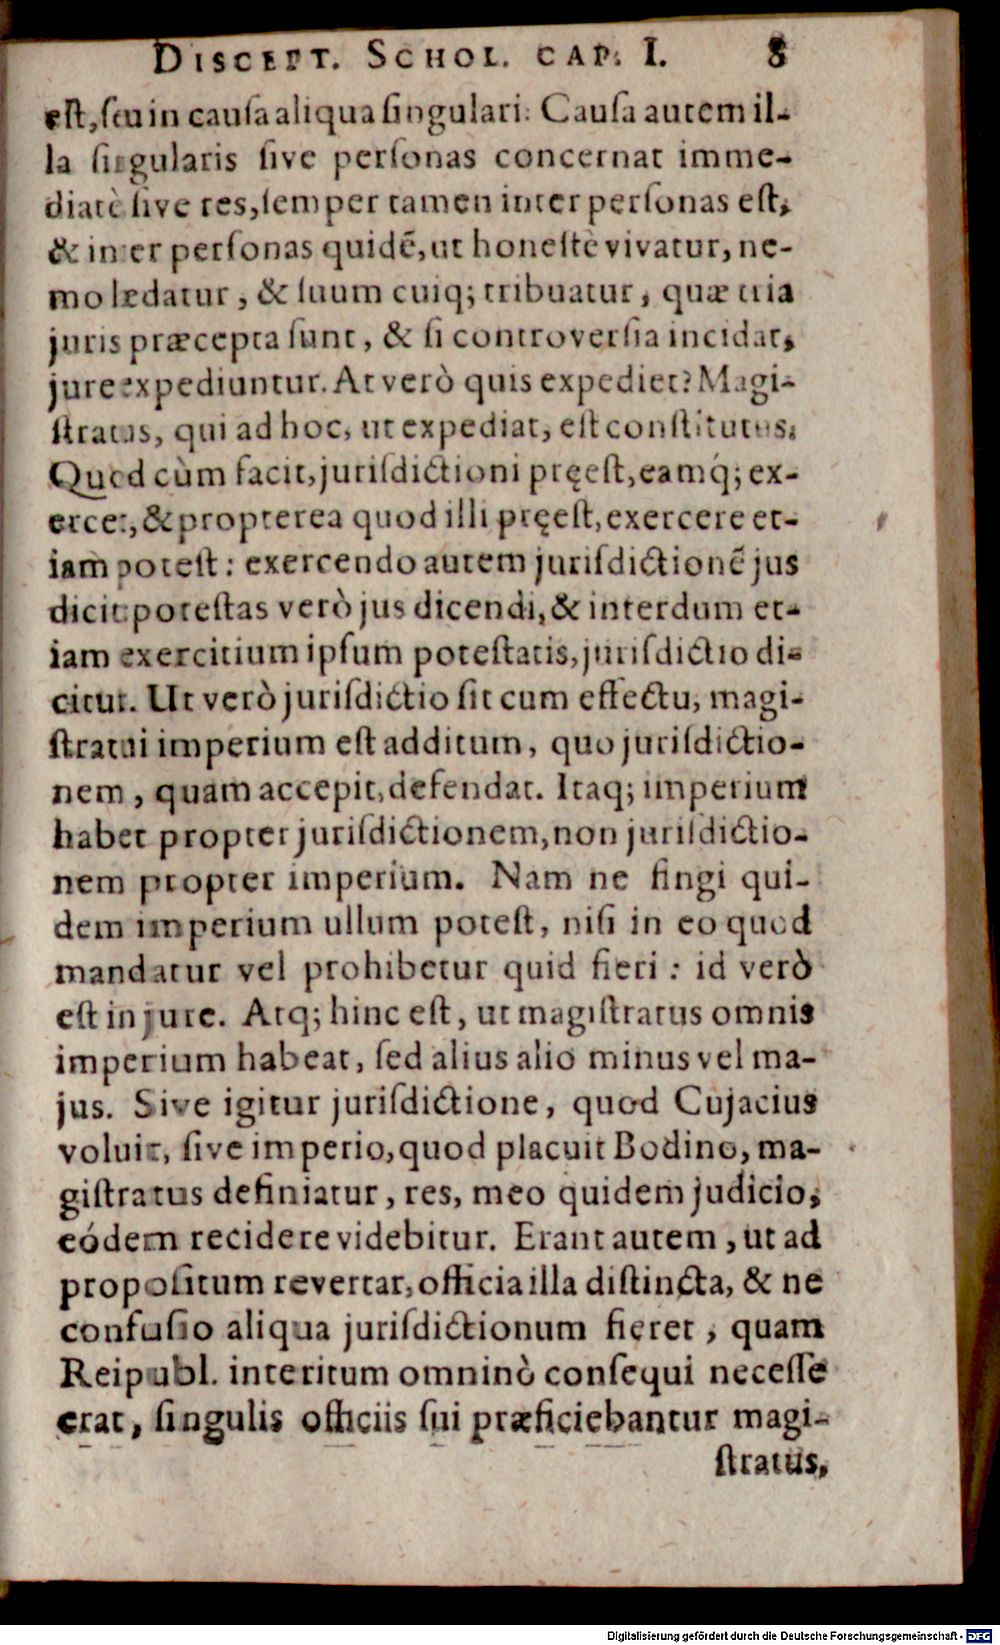 DISCEPT. SCHOL. CAP. I. 8
est, ſeu in cauſa aliqua ſingulari. Cauſa autem il-
la ſingularis ſive perſonas concernat imme-
diatè ſive res, ſemper tamen inter perſonas eſt,
& inter perſonas quidẽ, ut honeſtè vivatur, ne-
mo lædatur, & ſuum cuiq; tribuatur, quæ tria
juris præcepta ſunt, & ſi controverſia incidat,
jure expediuntur. At verò quis expediet? Magi-
ſtratus, qui ad hoc, ut expediat, eſt conſtitutus.
Quod cùm facit, jurisdictioni pręeſt, eamq́; ex-
ercet, & propterea quod illi pręeſt, exercere et-
iam poteſt: exercendo autem juriſdictionẽ jus
dicit: poteſtas verò jus dicendi, & interdum et-
iam exercitium ipſum poteſtatis, juriſdictio di-
citur. Ut verò juriſdictio ſit cum effectu, magi-
ſtratui imperium eſt additum, quo juriſdictio-
nem, quam accepit, defendat. Itaq; imperium
habet propter juriſdictionem, non juriſdictio-
nem propter imperium. Nam ne fingi qui-
dem imperium ullum poteſt, niſi in eo quod
mandatur vel prohibetur quid fieri: id verò
eſt in jure. Atq; hinc eſt, ut magiſtratus omnis
imperium habeat, ſed alius alio minus vel ma-
jus. Sive igitur juriſdictione, quod Cujacius
voluit, ſive imperio, quod placuit Bodino, ma-
giſtratus definiatur, res, meo quidem judicio,
eódem recidere videbitur. Erant autem, ut ad
propoſitum revertar, officia illa diſtincta, & ne
confuſio aliqua juriſdictionum fieret, quam
Reipubl. interitum omninò conſequi neceſſe
erat, ſingulis officiis ſui præficiebantur magi-
ſtratus,
Digitalisierung gefördert durch die Deutsche Forschungsgemeinschaft - DFG